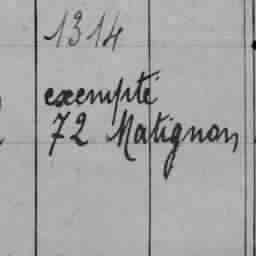 1314
exempté
72 Matignon